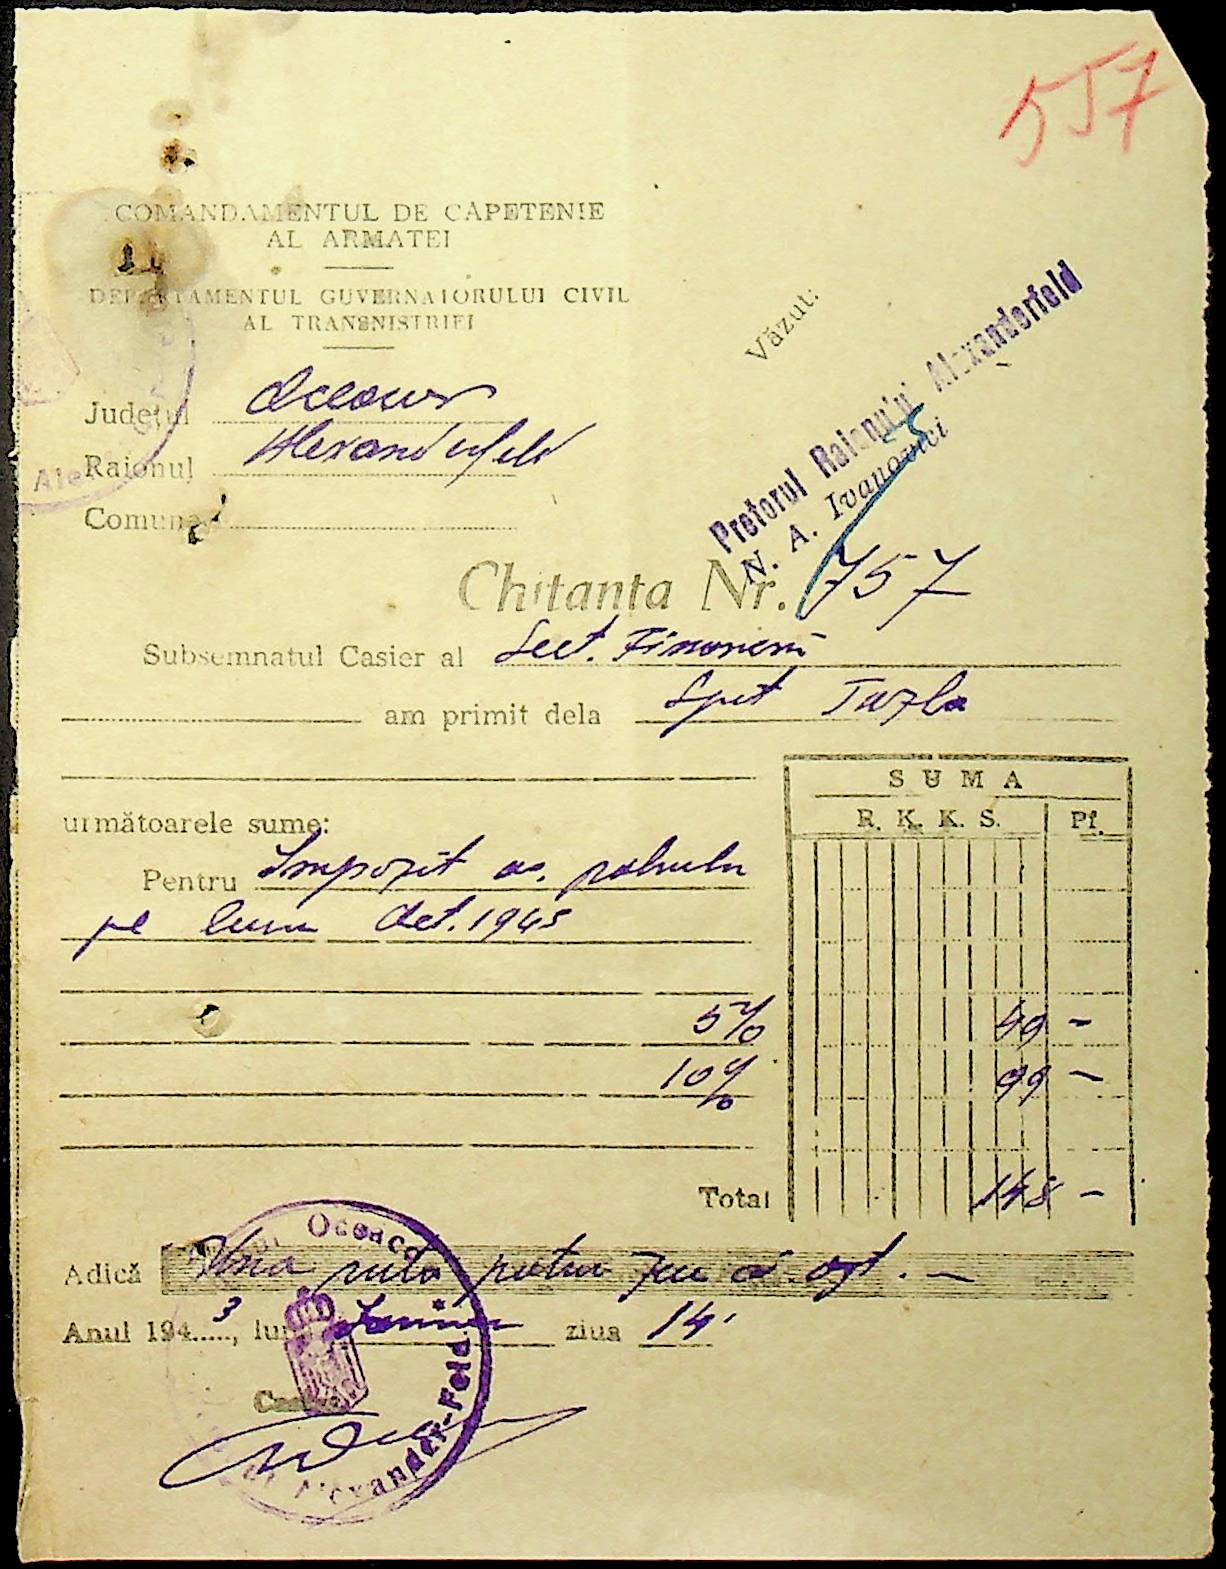 557
COMANDAMENTUL DE CAPETENIE
AL ARMATEI
DEPARTAMENTUL GUVERNATORULUI CIVIL
AL TRANSNISTRIEI
Văzut:
Pretorul Raionului Alexanderfeld
N. A. Ivanovici
Județul
Raionul Alexanderfeld
Comuna
Chitanta Nr. 757
Subsemnatul Casier al Sect. Financiar
am primit dela Spit Tuzla
SUMA
următoarele sume: R. K. K. S. Pf.
Pentru Impozit as.
pe luna Oct. 194
5% 49 –
10% 99 –
Total 148 –
Adică Una suta patru zeci opt . –
Anul 194 3, luna ziua 14
Casier
Oceacov
Alexander-Feld